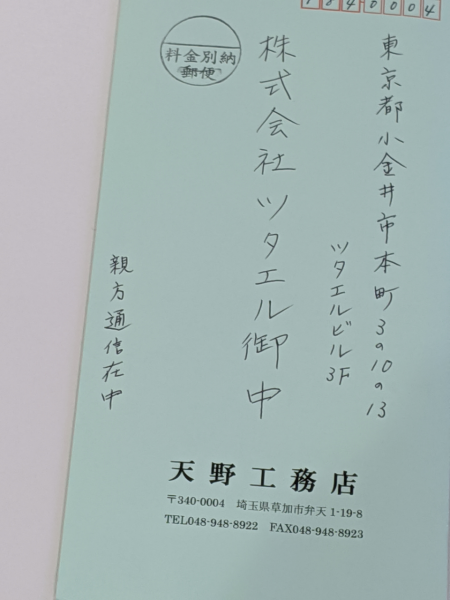 1840004
東京都小金井市本町3の10の13
ツタエルビル3F
株式会社ツタエル御中
料金別納
郵便
親方通信在中
天野工務店
〒340-0004 埼玉県草加市弁天1-19-8
TEL048-948-8922 FAX048-948-8923